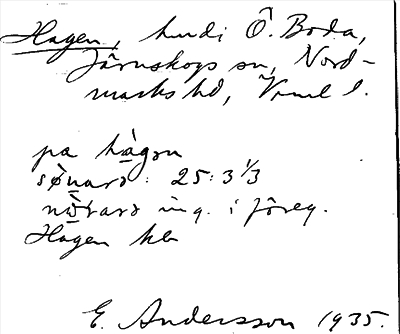 Hagen, hmdi Ö. Boda,
Järnskogs sn, Nord-
marks hd, Vrml l.
pa hàgən
sø̀narə: 25:3 1/3
nò̀rarə ing. i föreg.
Hagen kb
E. Andersson 1935.